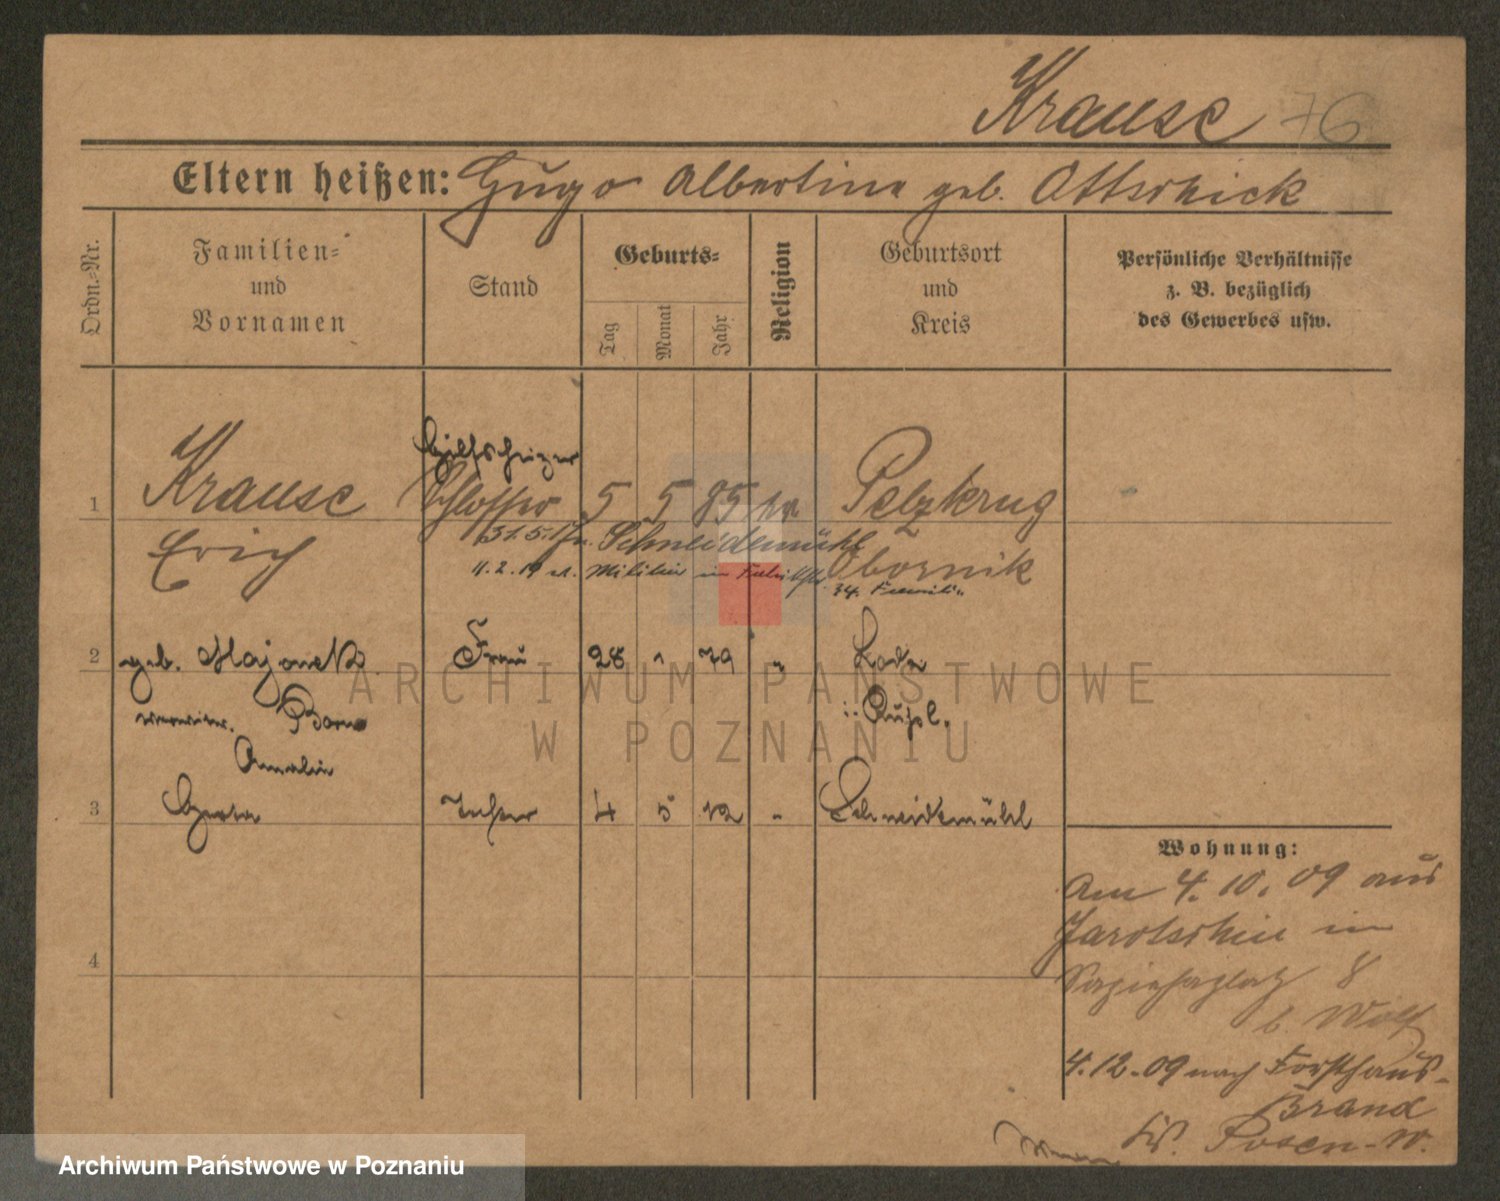 Krause 76
Eltern heißen: Hugo Albertine geb. Ottschick
Ordn.-Nr.
Familien-
und
Vornamen
Stand
Geburts-
Tag
Monat
Jahr
Religion
Geburtsort
und
Kreis
Persönliche Verhältnisse
z. B. bezüglich
des Gewerbes usw.
Hilfsheizer
1 Krause Schlosser 5 5 85 Pelzkrug
31.5.17 n. Schneidemühl
Erich Obornik
11.2.19 v. Militär in
2 geb. Majewsk Frau 28 1 79 " Lodz
Born Rußl.
Amalie
3 Gerta Tochter 4 5 12 " Schneidemühl
Wohnung:
Am 4.10.09 aus
Jarotschin in
4
Sapiehaplatz 8
b. Wolf
4.12.09 nach Forsthaus-
Brand
Posen-W.
ARCHIWUM PAŃSTWOWE
W POZNANIU
Archiwum Państwowe w Poznaniu